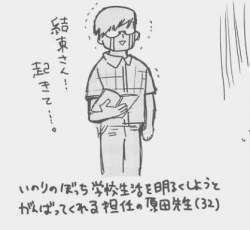 結束さん…
起きて…。
いのりのぼっち学校生活を明るくしようと
がんばってくれる担任の原田先生(32)